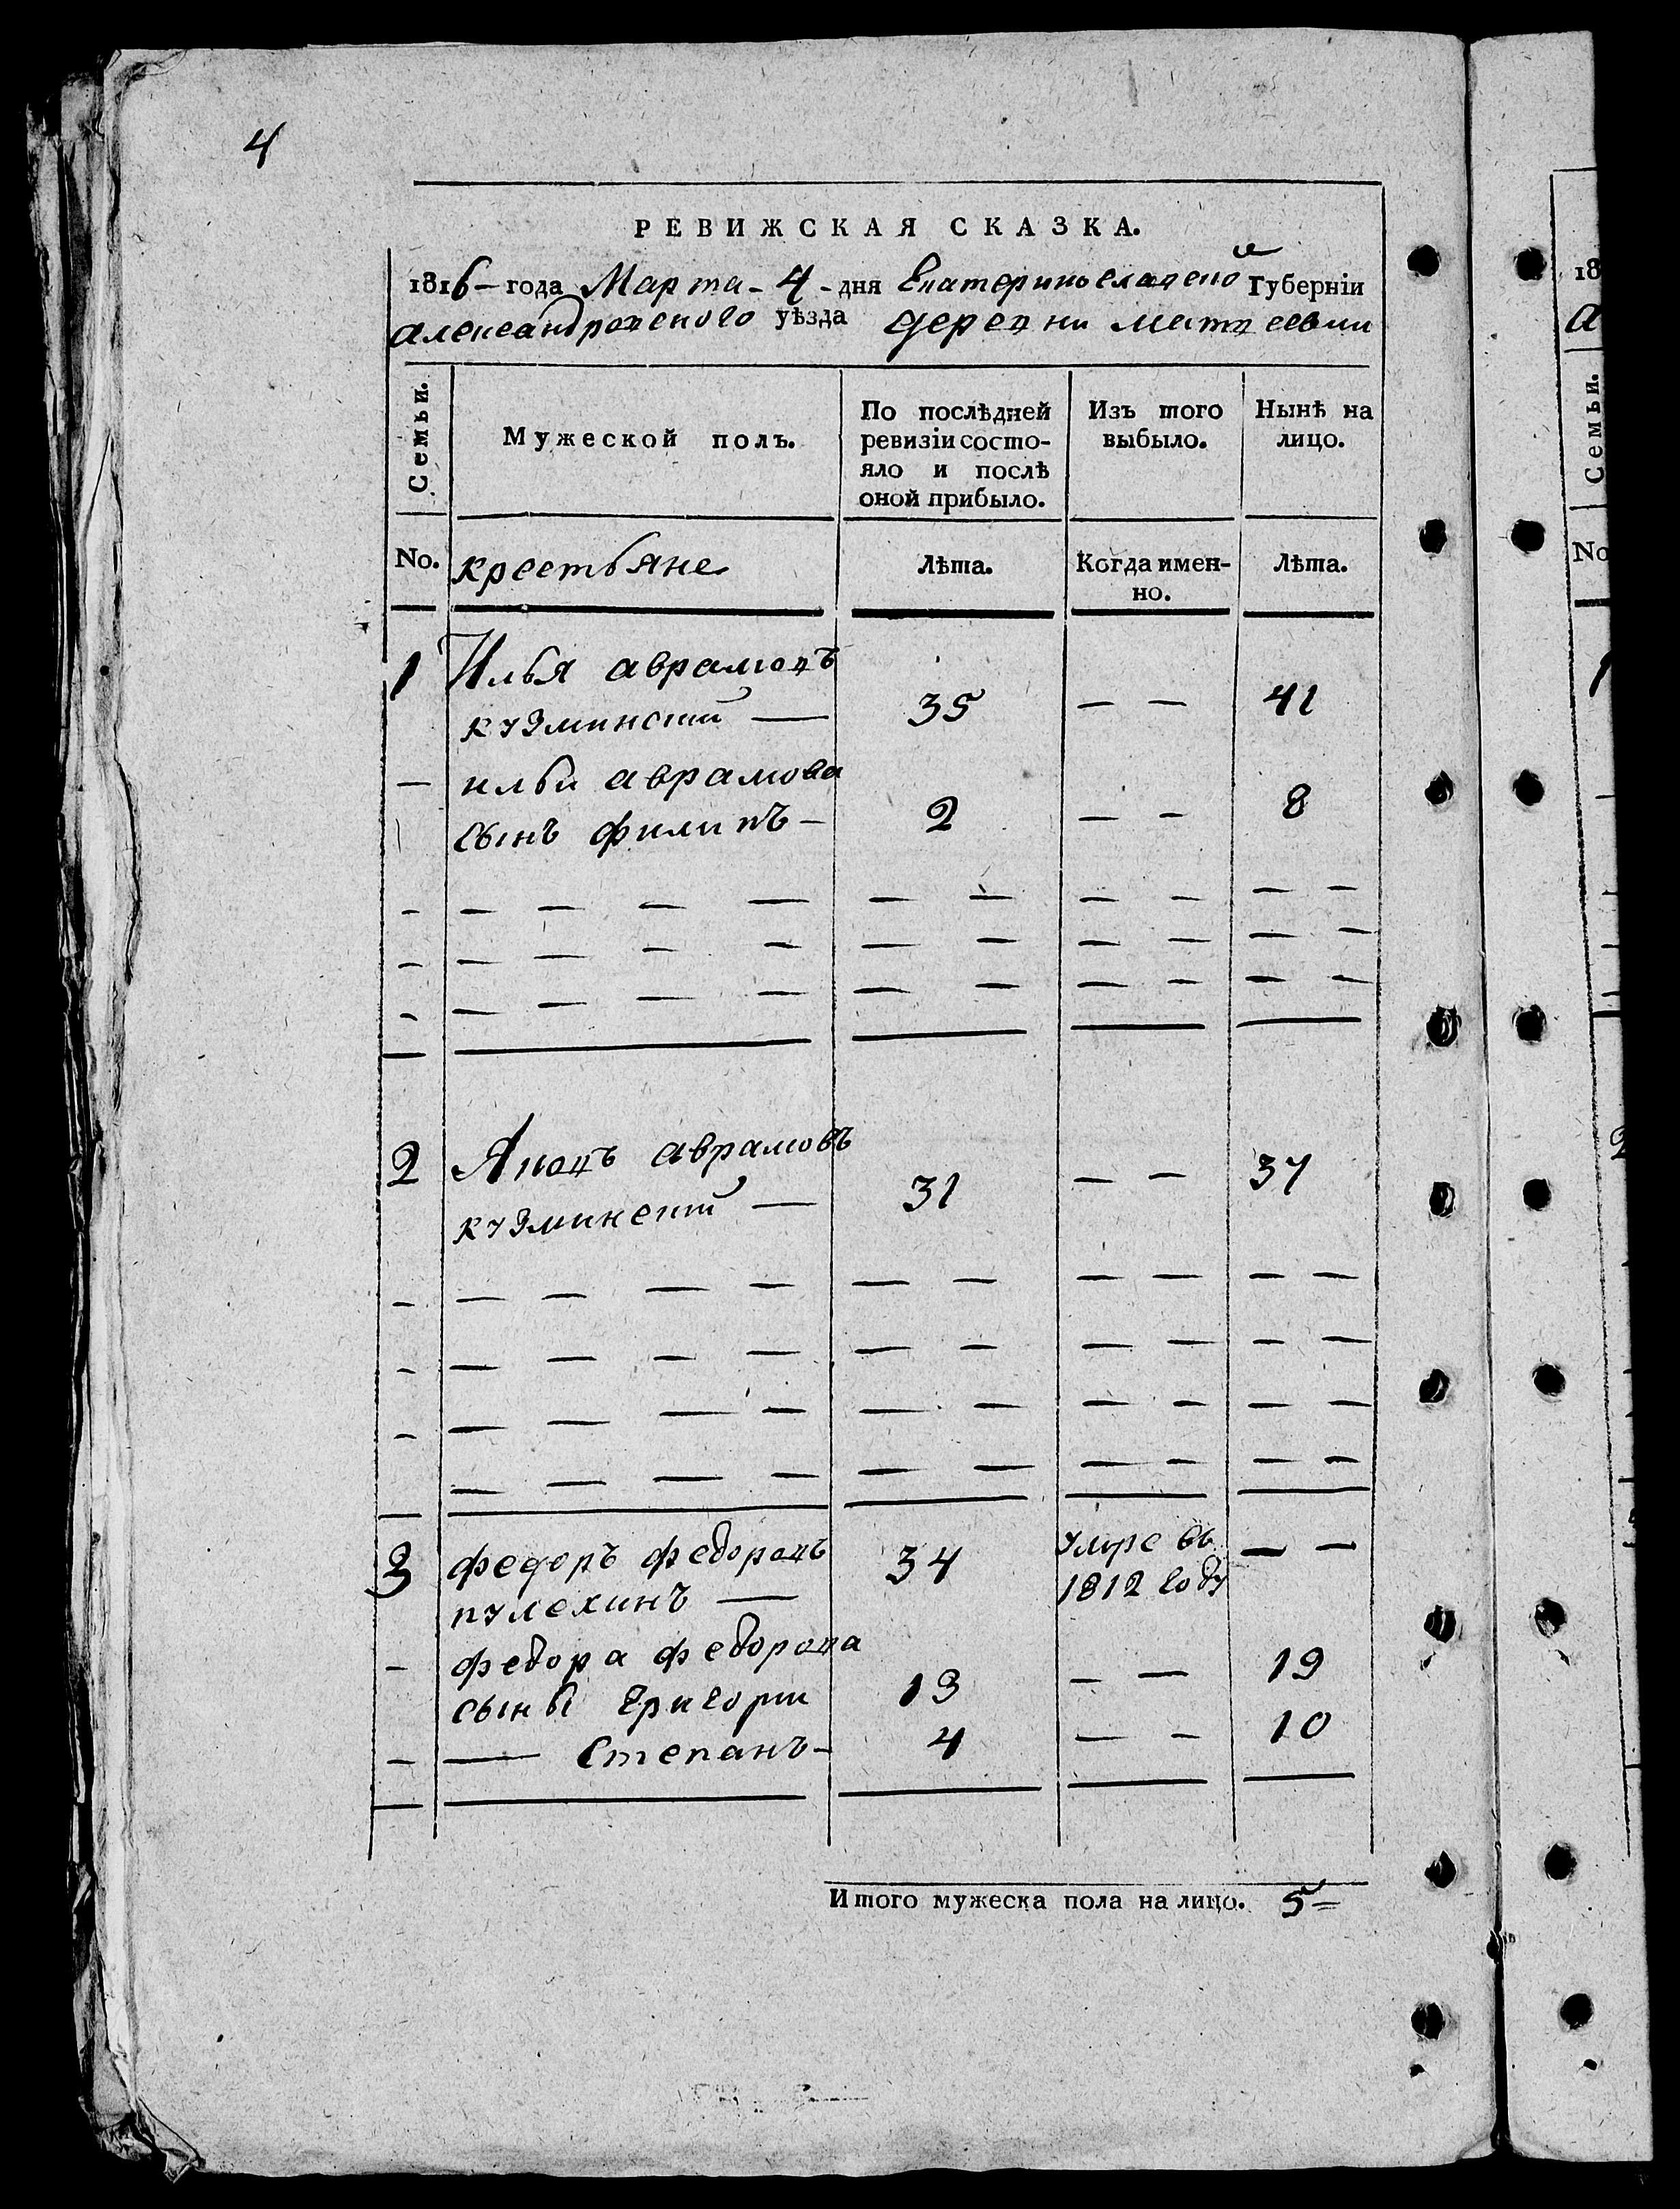 4
РЕВИЖСКАЯ СКАЗКА.
1816 – года Марта - 4 - дня Екатеринославской Губерніи
александровского уѣзда деревни матвеевки
Семьи. Мужеской полъ. По послѣдней ревизіи состояло и послѣ оной прибыло. Изъ того выбыло. Нынѣ на лицо.
No. крестьяне Лѣта. Когда именно. Лѣта.
1 Илья аврамовъ
кузминский — 35 — — 41
— ильи аврамова
сынъ филипъ — 2 — — 8
2 Яковъ аврамовъ
кузминский — 31 — — 37
3 федоръ федоровъ 34 умре въ — —
пулехинъ — 1812 году
— федора федорова
сыны григории 13 — — 19
— — Степанъ — 4 — — 10
Итого мужеска пола на лицо. 5=
18
а
Семьи.
No
1
2